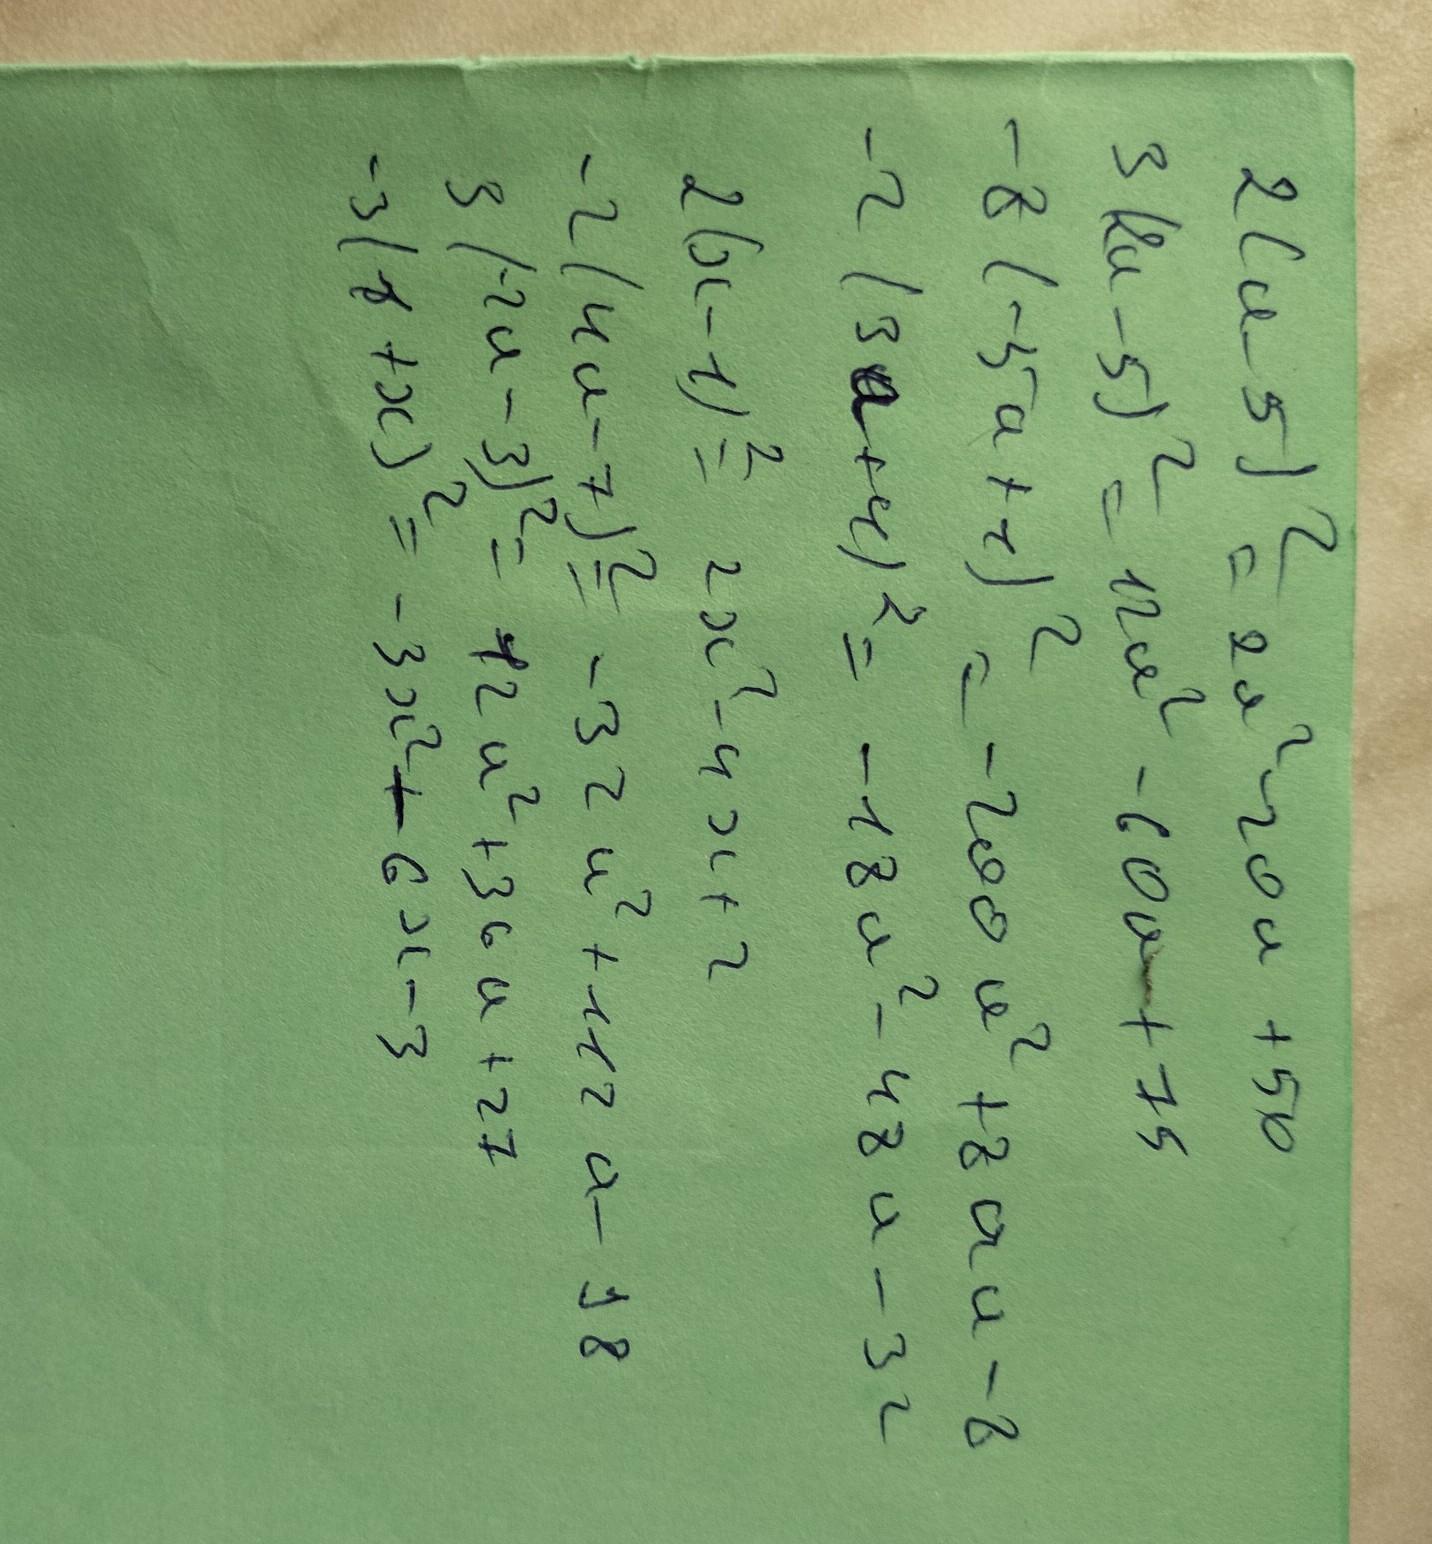 2(a-5)² = 2a²-20a+50
3(2a-5)² = 12a²-60a+75
-8(-5a+1)² = -200a²+80a-8
-2(3a+4)² = -18a²-48a-32
2(x-1)² = 2x²-4x+2
-2(4a-7)² = -32a²+112a-98
3(-2a-3)² = 12a²+36a+27